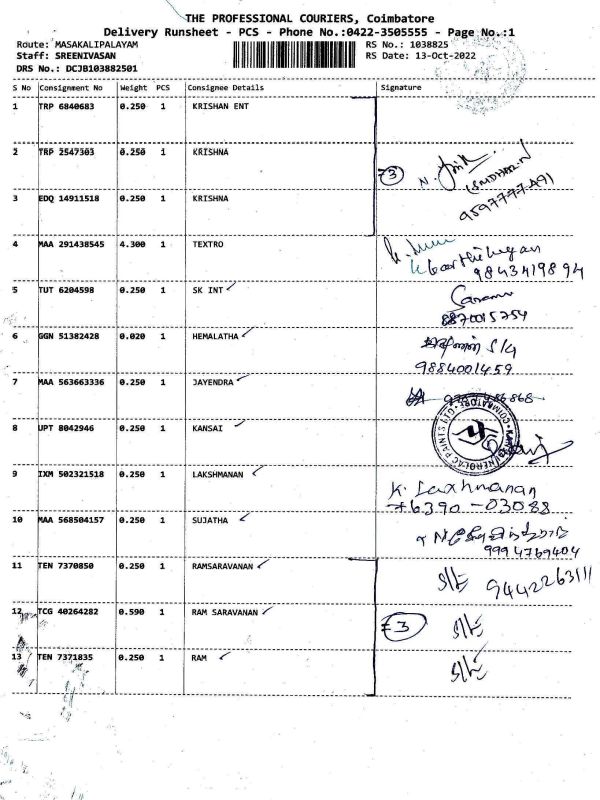 THE PROFESSIONAL COURIERS, Coimbatore
Delivery Runsheet - PCS - Phone No.:0422-3505555 - Page No.:1
Route: MASAKALIPALAYAM RS No.: 1038825
Staff: SREENIVASAN RS Date: 13-Oct-2022
DRS No.: DCJB103882501
S No Consignment No Weight PCS Consignee Details Signature
1 TRP 6840683 0.250 1 KRISHAN ENT
2 TRP 2547303 0.250 1 KRISHNA
3 N.
(SMDHAR.N
3 EDQ 14911518 0.250 1 KRISHNA
9597777491
4 MAA 291438545 4.300 1 TEXTRO
9843419894
5 TUT 6204598 0.250 1 SK INT
8870015754
6 GGN 51382428 0.020 1 HEMALATHA
S/G
9884001459
7 MAA 563663336 0.250 1 JAYENDRA
8 UPT 8042946 0.250 1 KANSAI
KANSAI NEROLAC PAINTS LTD COIMBATORE
9 IXM 502321518 0.250 1 LAKSHMANAN
K. Laxhmanan
76390-03088
10 MAA 568504157 0.250 1 SUJATHA
9994769404
11 TEN 7370850 0.250 1 RAMSARAVANAN
9442263111
12 TCG 40264282 0.590 1 RAM SARAVANAN
3
13 TEN 7371835 0.250 1 RAM